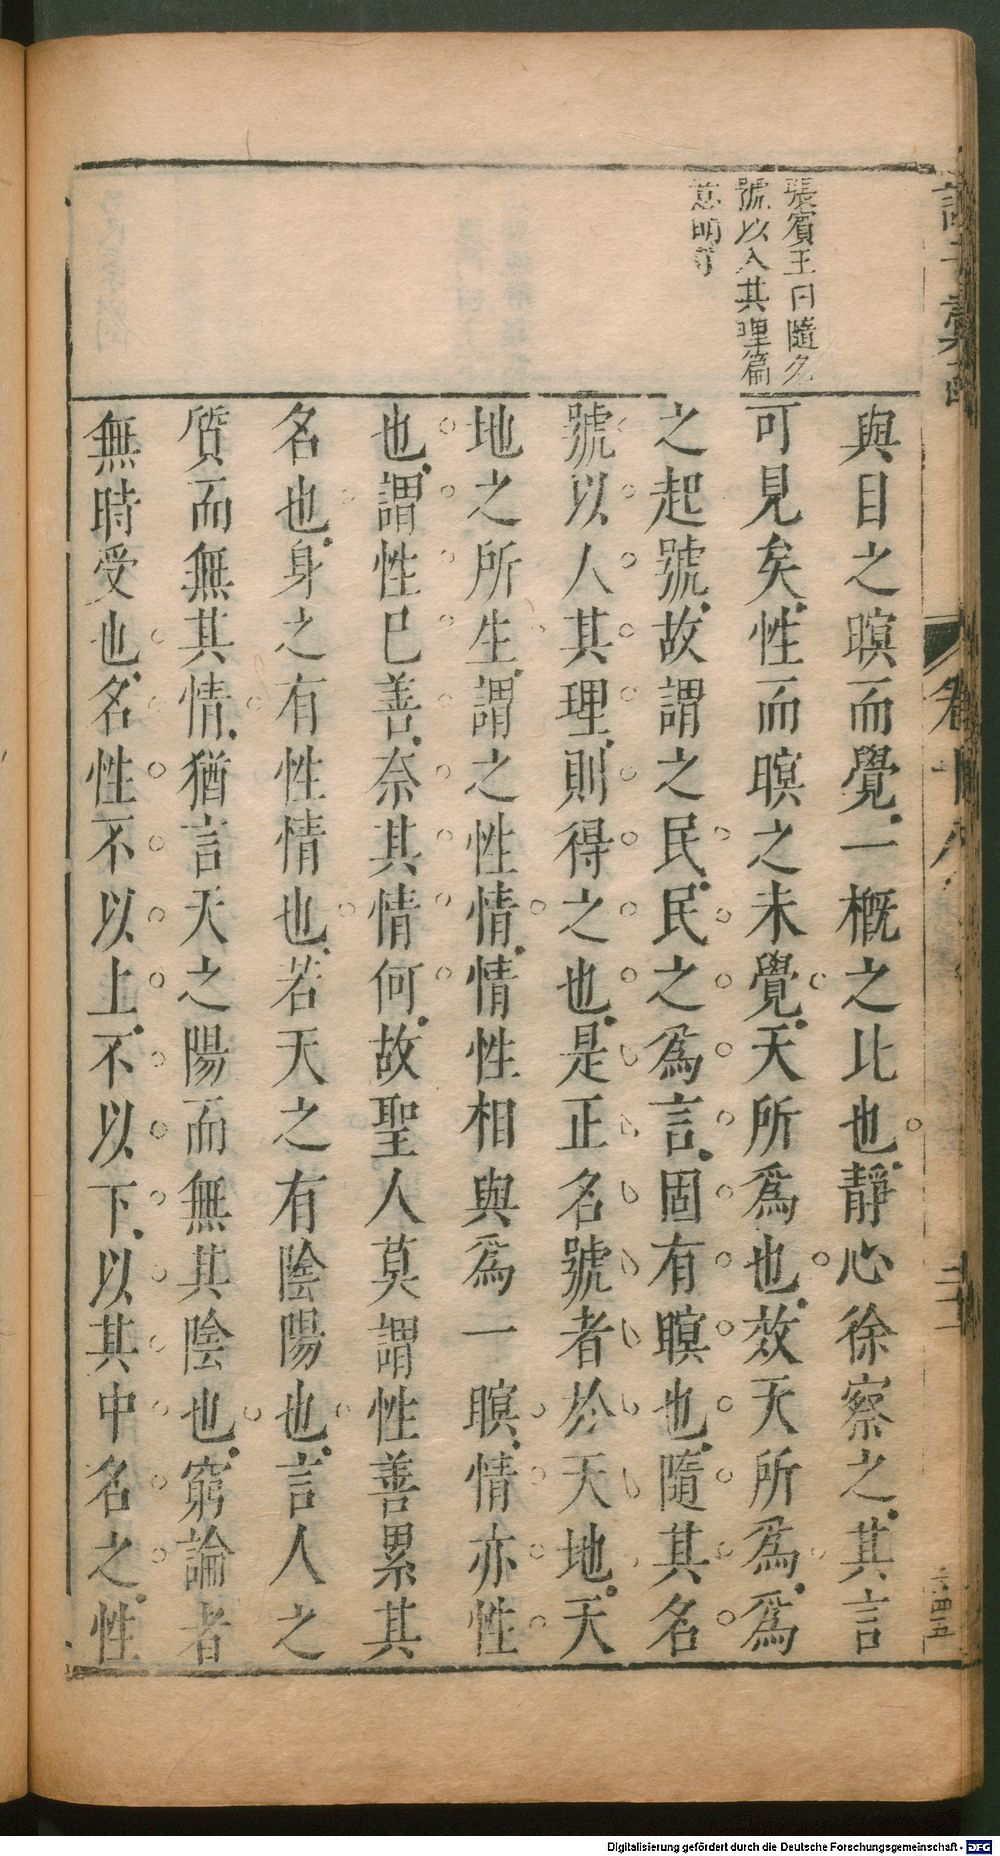 張賓王曰隨名
號以入其理篇
意明可
與目之瞑而覺一概之比也靜心徐察之其言
可見矣性而瞑之未覺天所爲也效天所爲爲
之起號故謂之民民之爲言固有瞑也隨其名
號以人其理則得之也是正名號者於天地天
地之所生謂之性情情性相與爲一瞑情亦性
也謂性已善奈其情何故聖人莫謂性善累其
名也身之有性情也若天之有陰陽也言人之
質而無其情猶言天之陽而無其陰也窮論者
無時受也名性不以上不以下以其中名之性
卷十八
二十一
六四五
Digitalisierung gefördert durch die Deutsche Forschungsgemeinschaft - DFG